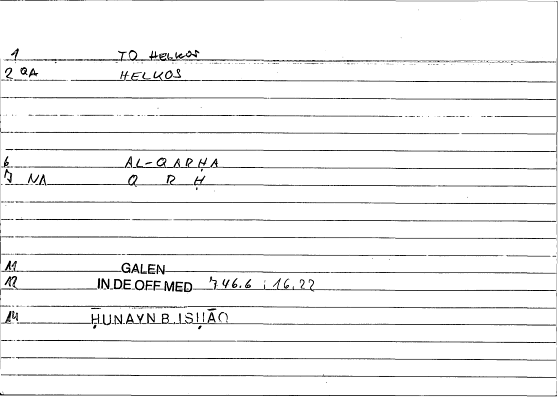 1 TO HELKOS
2 QA HELKOS
6 AL-QARḤA
7 NA Q R Ḥ
11 GALEN
12 IN.DE OFF.MED 746.6 ; 16.22
14 ḤUNAYN B. ISḤĀQ